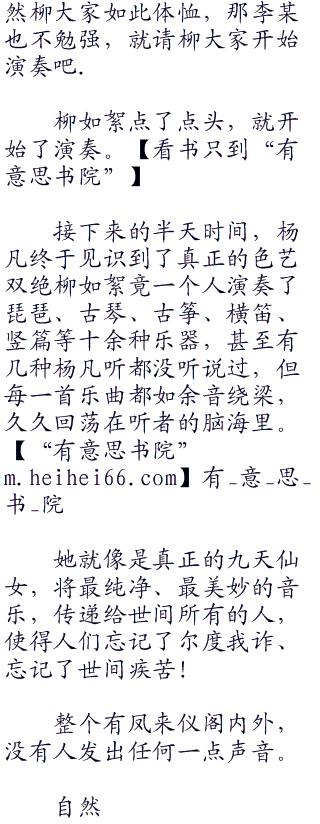 然柳大家如此体恤，那李某
也不勉强，就请柳大家开始
演奏吧.
柳如絮点了点头，就开
始了演奏。【看书只到“有
意思书院”】
接下来的半天时间，杨
凡终于见识到了真正的色艺
双绝柳如絮竟一个人演奏了
琵琶、古琴、古筝、横笛、
竖篇等十余种乐器，甚至有
几种杨凡听都没听说过，但
每一首乐曲都如余音绕梁，
久久回荡在听者的脑海里。
【“有意思书院”
m.heihei66.com】有_意_思_
书_院
她就像是真正的九天仙
女，将最纯净、最美妙的音
乐，传递给世间所有的人，
使得人们忘记了尔度我诈、
忘记了世间疾苦！
整个有凤来仪阁内外，
没有人发出任何一点声音。
自然